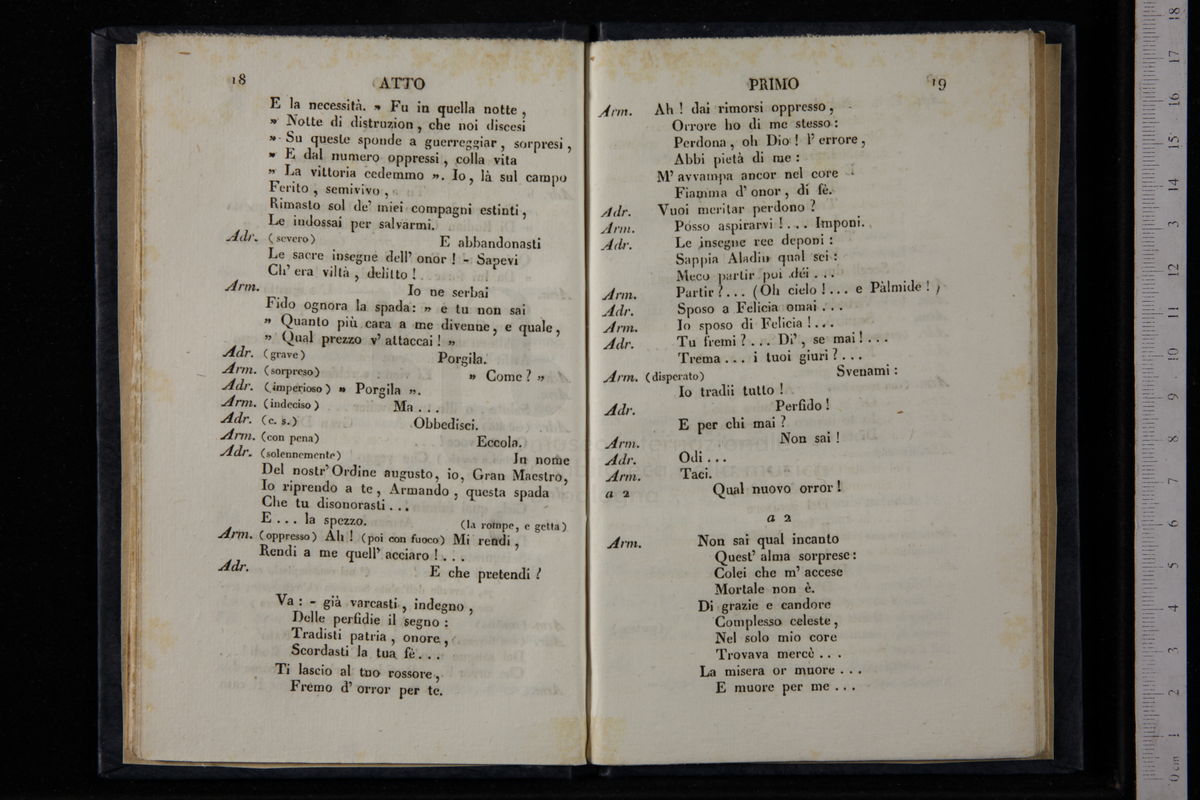 18
ATTO
E la necessità. „ Fu in quella notte ,
„ Notte di distruzion , che noi discesi
„ Su queste sponde a guerreggiar , sorpresi ,
„ E dal numero oppressi , colla vita
„ La vittoria cedemmo „. Io , là sul campo
Ferito , semivivo ,
Rimasto sol de' miei compagni estinti ,
Le indossai per salvarmi.
Adr. (severo) E abbandonasti
Le sacre insegne dell' onor ! - Sapevi
Ch' era viltà , delitto !
Arm. Io ne serbai
Fido ognora la spada: „ e tu non sai
„ Quanto più cara a me divenne , e quale ,
„ Qual prezzo v' attaccai ! „
Adr. (grave) Porgila.
Arm. (sorpreso) „ Come ? „
Adr. (imperioso) „ Porgila „.
Arm. (indeciso) Ma . . .
Adr. (c. s.) Obbedisci.
Arm. (con pena) Eccola.
Adr. (solennemente) In nome
Del nostr' Ordine augusto, io, Gran Maestro,
Io riprendo a te , Armando , questa spada
Che tu disonorasti . . .
E . . . la spezzo. (la rompe, e getta)
Arm. (oppresso) Ah ! (poi con fuoco) Mi rendi ,
Rendi a me quell' acciaro ! . . .
Adr. E che pretendi ?
Va : - già varcasti , indegno ,
Delle perfidie il segno :
Tradisti patria , onore ,
Scordasti la tua fè . . .
Ti lascio al tuo rossore ,
Fremo d' orror per te.
PRIMO
19
Arm. Ah ! dai rimorsi oppresso ,
Orrore ho di me stesso :
Perdona , oh Dio ! l' errore ,
Abbi pietà di me :
M' avvampa ancor nel core
Fiamma d' onor , di fè.
Adr. Vuoi meritar perdono ?
Arm. Posso aspirarvi ! . . . Imponi.
Adr. Le insegne ree deponi :
Sappia Aladin qual sei :
Meco partir poi dèi . . .
Arm. Partir ? . . . (Oh cielo ! . . . e Pàlmide ! )
Adr. Sposo a Felicia omai . . .
Arm. Io sposo di Felicia ! . . .
Adr. Tu fremi ? . . . Di' , se mai ! . . .
Trema . . . i tuoi giuri ? . . .
Arm. (disperato) Svenami :
Io tradii tutto !
Adr. Perfido !
E per chi mai ?
Arm. Non sai !
Adr. Odi . . .
Arm. Taci.
a 2 Qual nuovo orror !
a 2
Arm. Non sai qual incanto
Quest' alma sorprese :
Colei che m' accese
Mortale non è.
Di grazie e candore
Complesso celeste ,
Nel solo mio core
Trovava mercè . . .
La misera or muore . . .
E muore per me . . .